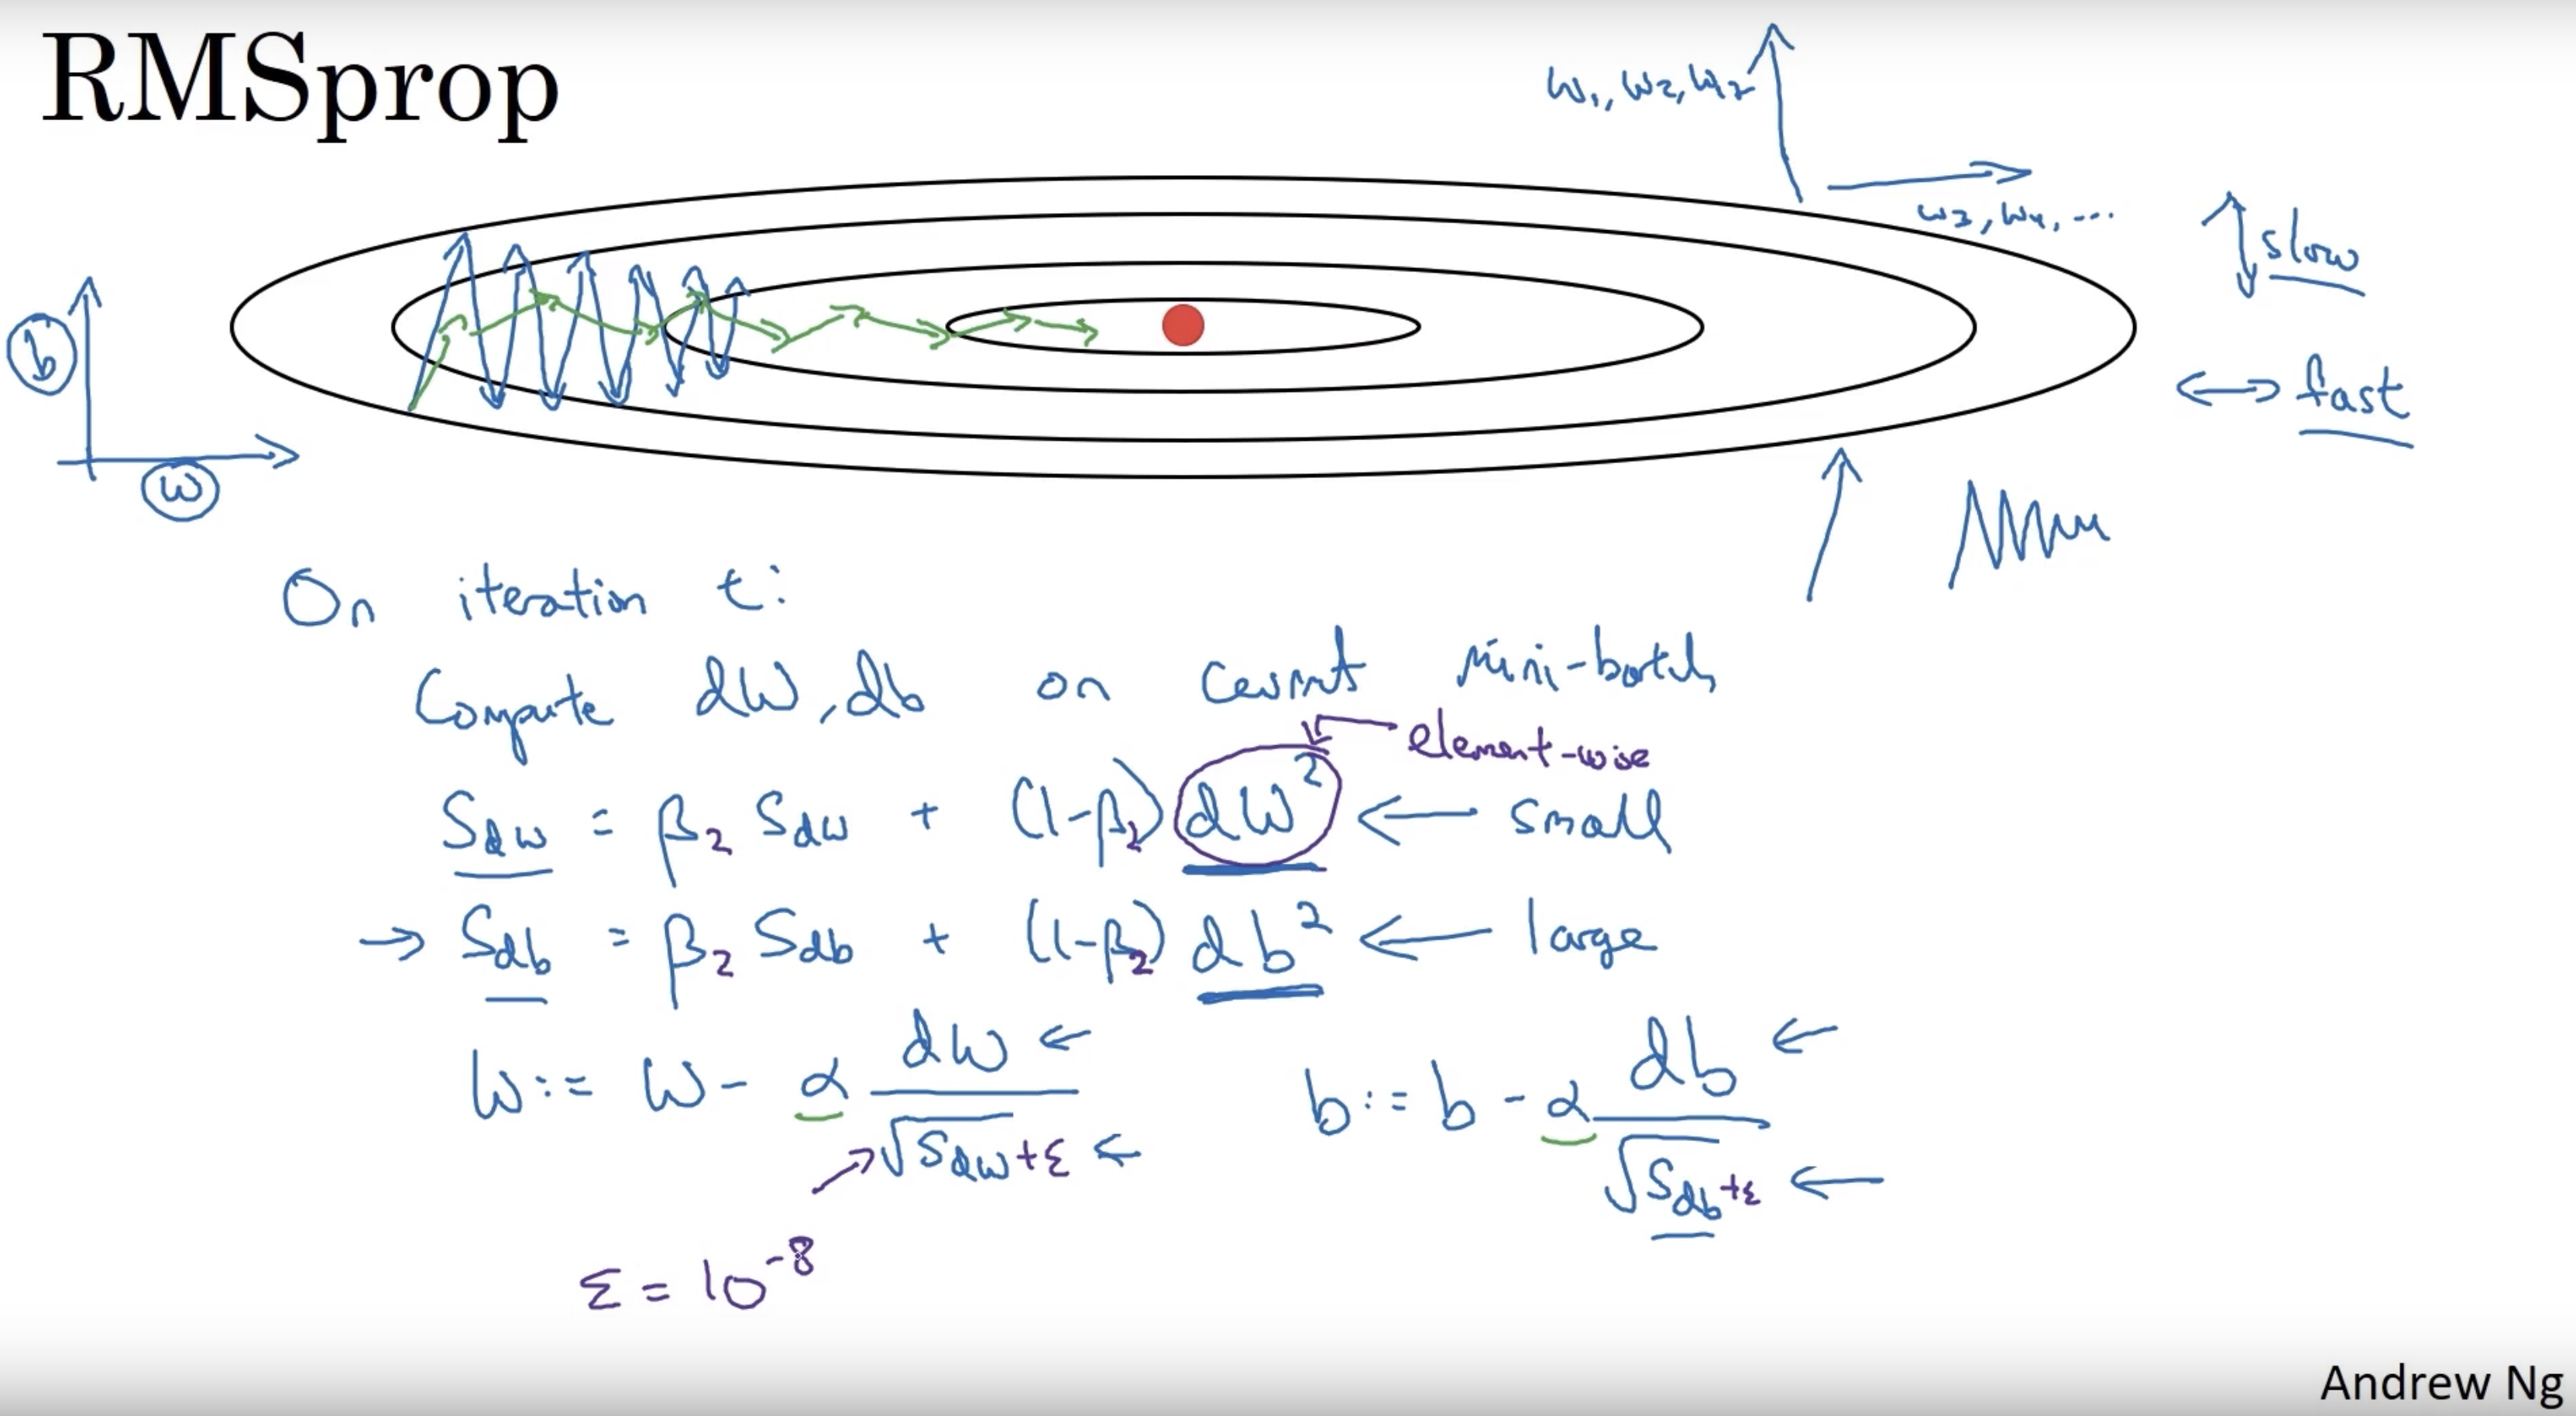 RMSprop
w₁, w₂, w₇
w₃, w₄, ...
slow
b
fast
w
On iteration t:
Compute dW, db on current mini-batch
element-wise
S_dw = β₂ S_dw + (1-β₂) dW² ← small
→ S_db = β₂ S_db + (1-β₂) db² ← large
W := W - α dW / √S_dw + ε ←
b := b - α db / √S_db + ε ←
ε = 10⁻⁸
Andrew Ng